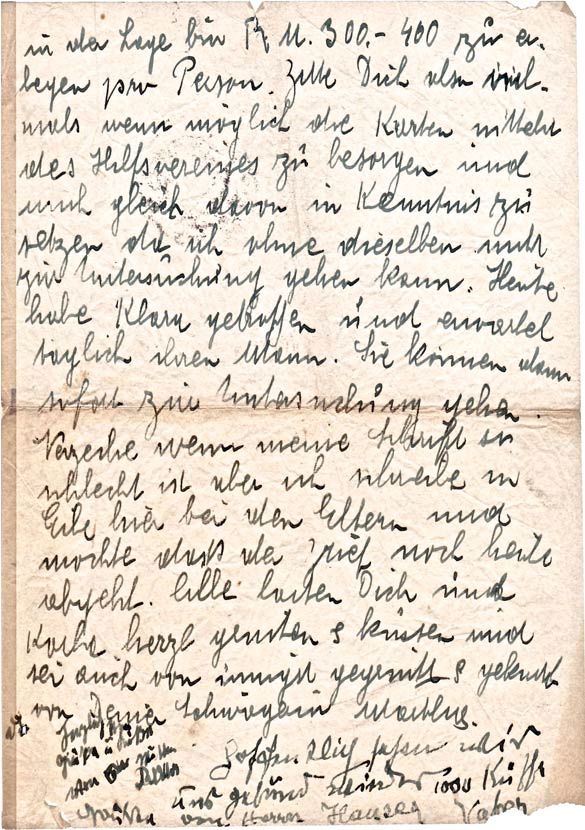 in der Lage bin R M. 300.- 400 zu er-
legen pro Person. Bitte Dich also viel-
mals wenn möglich die Karten mittelst
des Hilfsvereines zu besorgen und
mich gleich davon in Kenntnis zu
setzen da ich ohne dieselben nicht
zur Untersuchung gehen kann. Heute
habe Klara getroffen und erwartet
täglich ihren Mann. Sie können dann
sofort zur Untersuchung gehen.
Verzeihe wenn meine Schrift so
schlecht ist aber ich schreibe in
Eile hier bei den Eltern und
möchte dass der Brief noch heute
abgeht. Alle lassen Dich und
herzl grüssen & küssen und
sei auch von innigst gegrüsst & geküsst
von Deiner Schwägerin
Hoffentlich sehen wir
uns gesund wieder 1000 Küsse
Vater
von Herrn